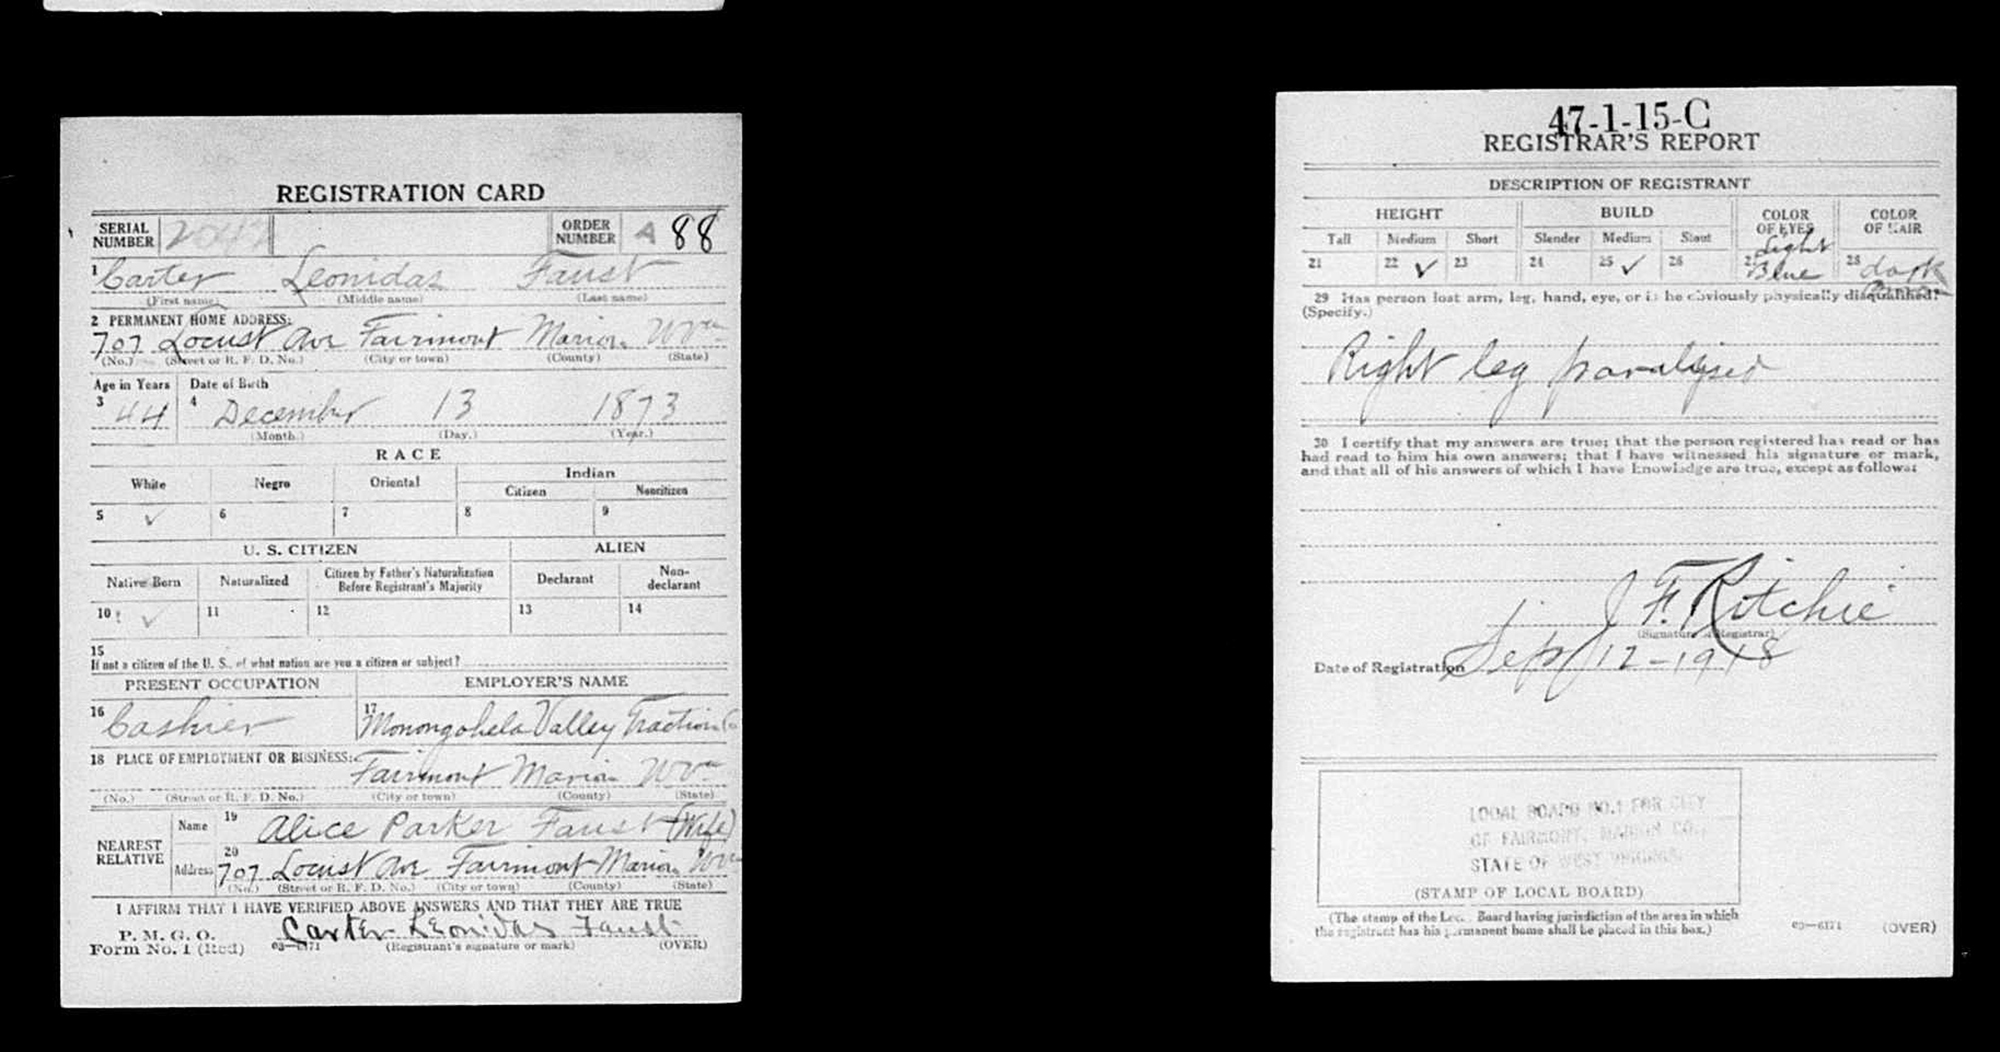 REGISTRATION CARD
SERIAL NUMBER
ORDER NUMBER A 88
1 Carter Leonidas Faust
(First name) (Middle name) (Last name)
2 PERMANENT HOME ADDRESS:
707 Locust Ave Fairmont Marion WVa
(No.) (Street or R. F. D. No.) (City or town) (County) (State)
Age in Years Date of Birth
3 44 4 December 13 1873
(Month.) (Day.) (Year.)
RACE
White Negro Oriental Indian
Citizen Noncitizen
5 ✓ 6 7 8 9
U. S. CITIZEN ALIEN
Native Born Naturalized Citizen by Father's Naturalization Before Registrant's Majority Declarant Non-declarant
10 ✓ 11 12 13 14
15
If not a citizen of the U. S., of what nation are you a citizen or subject?
PRESENT OCCUPATION EMPLOYER'S NAME
16 Cashier 17 Monongahela Valley Traction Co
18 PLACE OF EMPLOYMENT OR BUSINESS:
Fairmont Marion WVa
(No.) (Street or R. F. D. No.) (City or town) (County) (State)
NEAREST RELATIVE
Name 19 Alice Parker Faust (Wife)
Address 20 707 Locust Ave Fairmont Marion WVa
(No.) (Street or R. F. D. No.) (City or town) (County) (State)
I AFFIRM THAT I HAVE VERIFIED ABOVE ANSWERS AND THAT THEY ARE TRUE
P. M. G. O.
Form No. 1 (Red) 03—6171 Carter Leonidas Faust
(Registrant's signature or mark) (OVER)
47-1-15-C
REGISTRAR'S REPORT
DESCRIPTION OF REGISTRANT
HEIGHT BUILD COLOR OF EYES COLOR OF HAIR
Tall Medium Short Slender Medium Stout
21 22 ✓ 23 24 25 ✓ 26 27 Light Blue 28 dark
29 Has person lost arm, leg, hand, eye, or is he obviously physically disqualified?
(Specify.)
Right leg paralyzed
30 I certify that my answers are true; that the person registered has read or has
had read to him his own answers; that I have witnessed his signature or mark,
and that all of his answers of which I have knowledge are true, except as follows:
J F. Ritchie
(Signature of Registrar)
Date of Registration Sep 12-1918
LOCAL BOARD NO.1 FOR CITY
OF FAIRMONT, MARION CO.,
STATE OF WEST VIRGINIA.
(STAMP OF LOCAL BOARD)
(The stamp of the Local Board having jurisdiction of the area in which
the registrant has his permanent home shall be placed in this box.)
03—6171 (OVER)